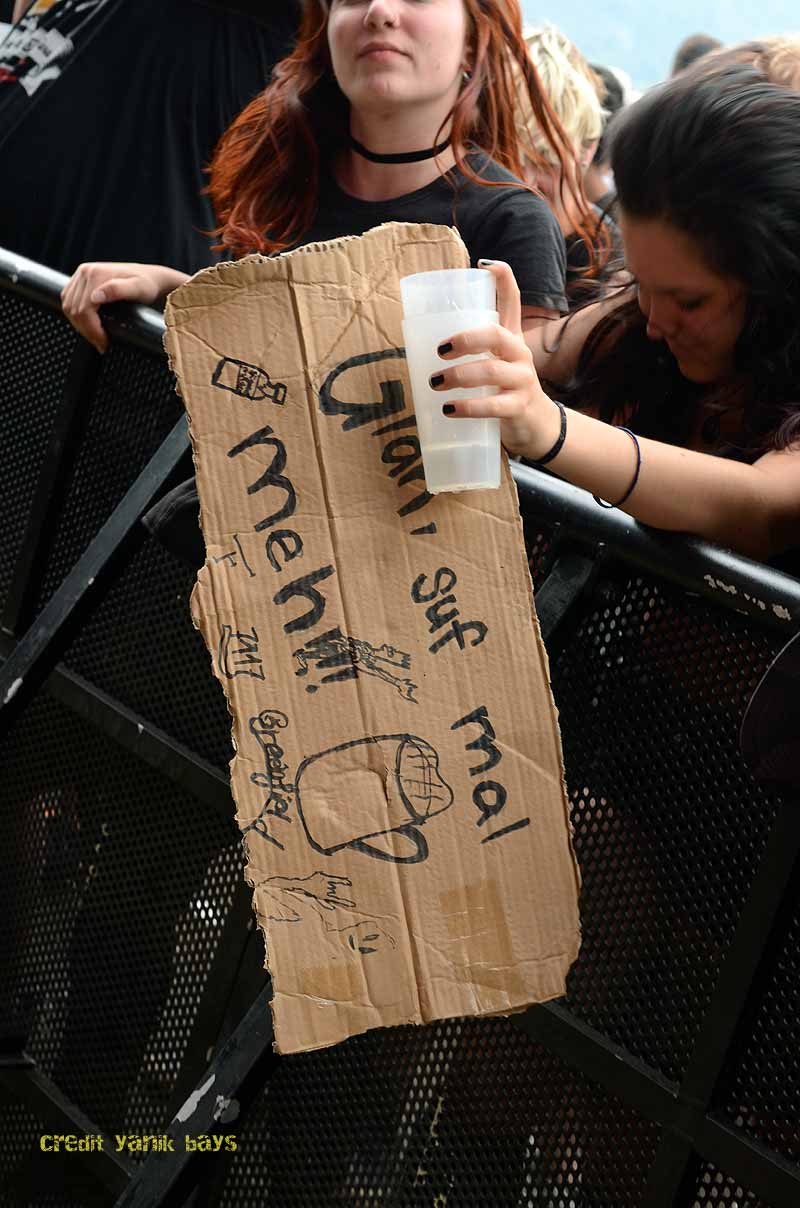 Glan, suf mal
mehr!!
Greenfield
credit yanik bays